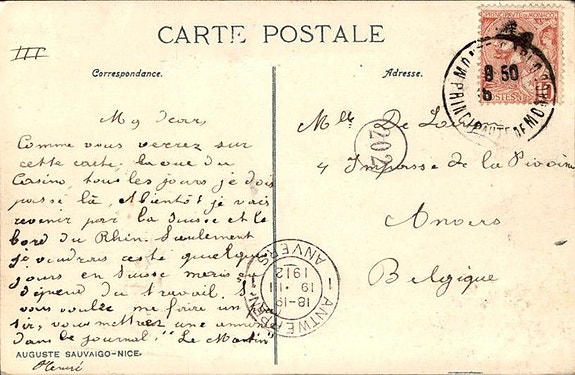 III
CARTE POSTALE
Correspondance.
Adresse.
My dear
Comme vous verrez sur
cette carte, la vue du
Casino, tous les jours je dois
passé là, A bientôt je vais
revenir par la Suisse et le
bord du Rhin. Seulement
je voudrais resté quelques
jours en Suisse mais
dépend du travail. Si
vous voulée me faire un
sir, vous mettrez une annonce
dans le journal "Le Martin"
Mlle De
4 Impasse de la Pivoine
Anvers
Belgique
202
9 50
PRINCIPAUTE DE MONACO
ANTWERPEN 1
ANVERS 1
18-19
19 III
1912
AUGUSTE SAUVAIGO-NICE.